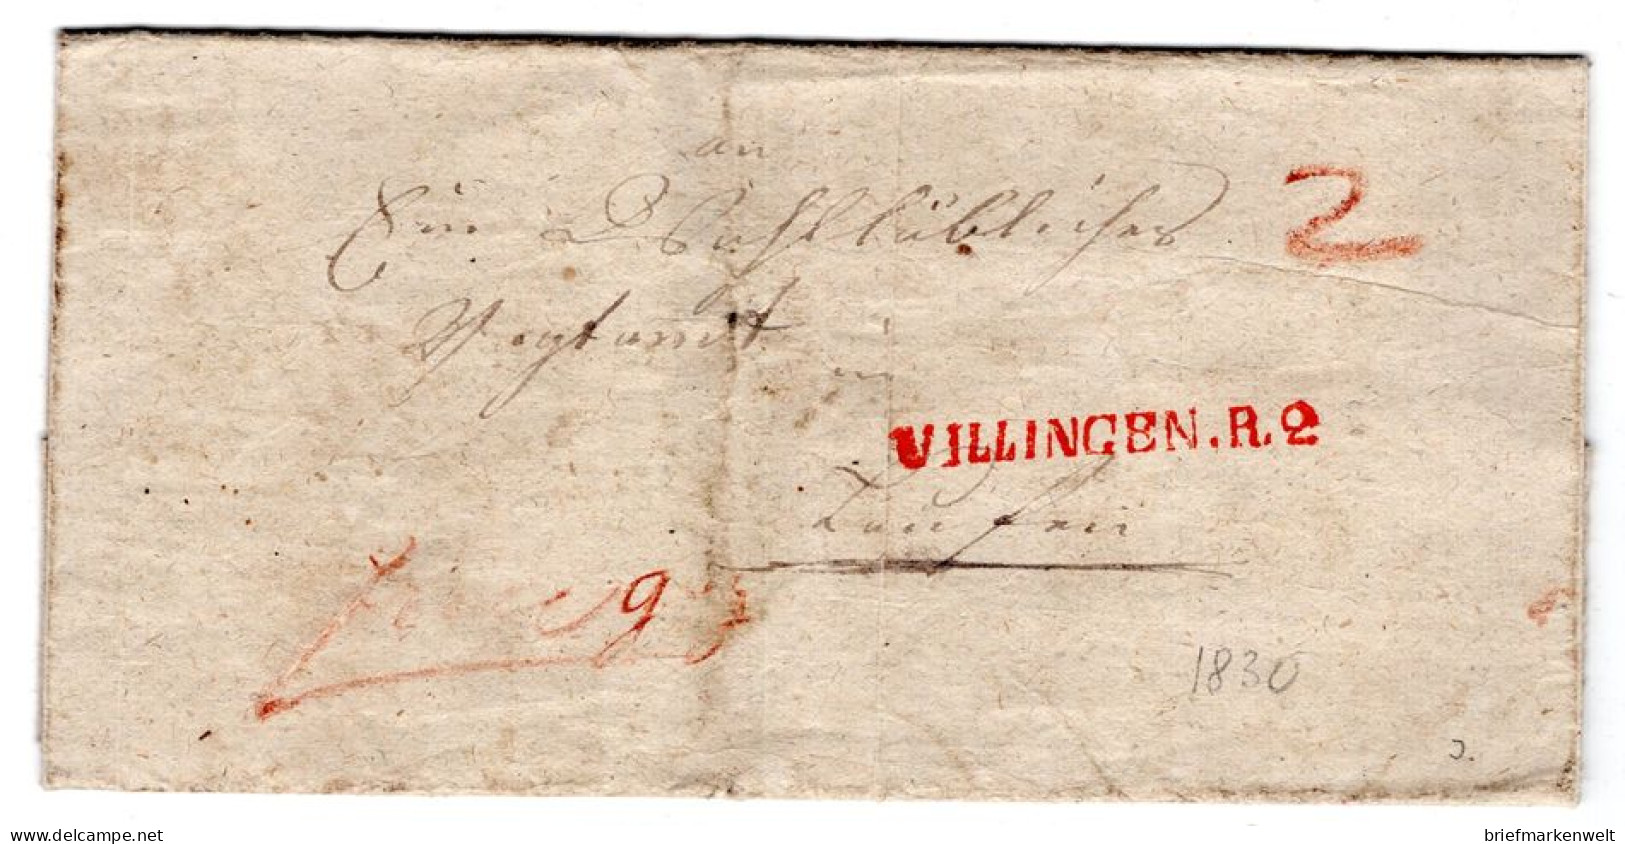 an
2
Ein Wohllöbliches
Vogtamt
in
VILLINGEN.R.2
Laufen
1830
J.
www.delcampe.net
briefmarkenwelt